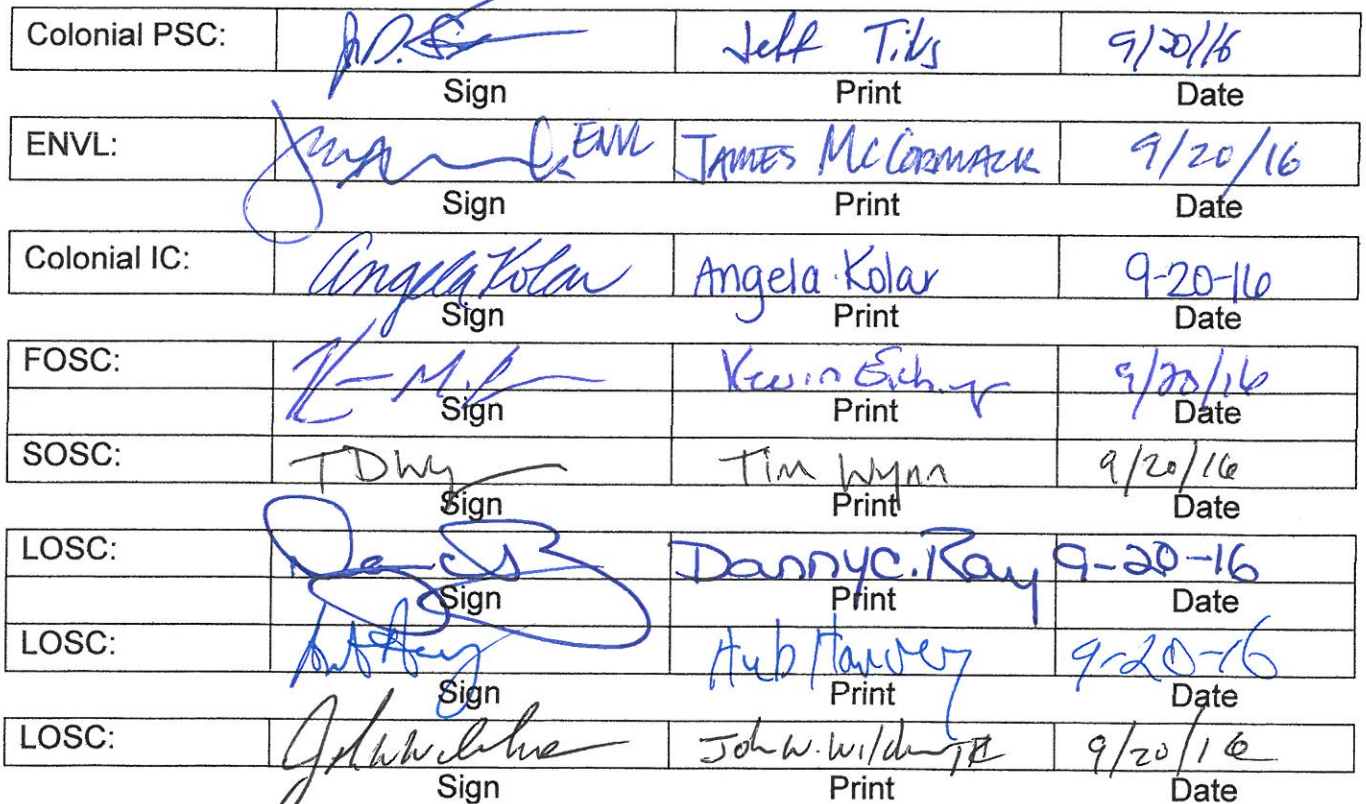 Colonial PSC: Jeff Tiks 9/20/16
Sign Print Date
ENVL: ENVL JAMES McCORMACK 9/20/16
Sign Print Date
Colonial IC: Angela Kolar Angela Kolar 9-20-16
Sign Print Date
FOSC: Kevin 9/20/16
Sign Print Date
SOSC: Tim Wynn 9/20/16
Sign Print Date
LOSC: Danny C. Ray 9-20-16
Sign Print Date
LOSC: Hub Harvey 9-20-16
Sign Print Date
LOSC: John W. 9/20/16
Sign Print Date